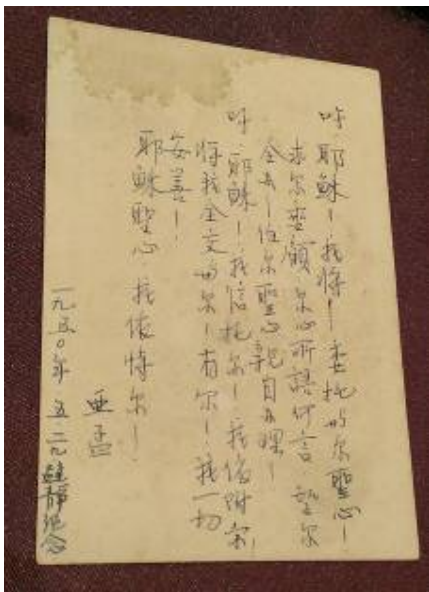 吁耶穌！我將！委托与尔聖心！
求尔垂顧 尔心所語何言 望尔
全去！任尔聖心親自办理！
吁 耶穌！我信托尔！我倚附尔！
將我全交与尔！有尔！我一切
妥善！
耶穌聖心 我依恃尔！
亚孟
一九五〇年 五.二九 靜紀念